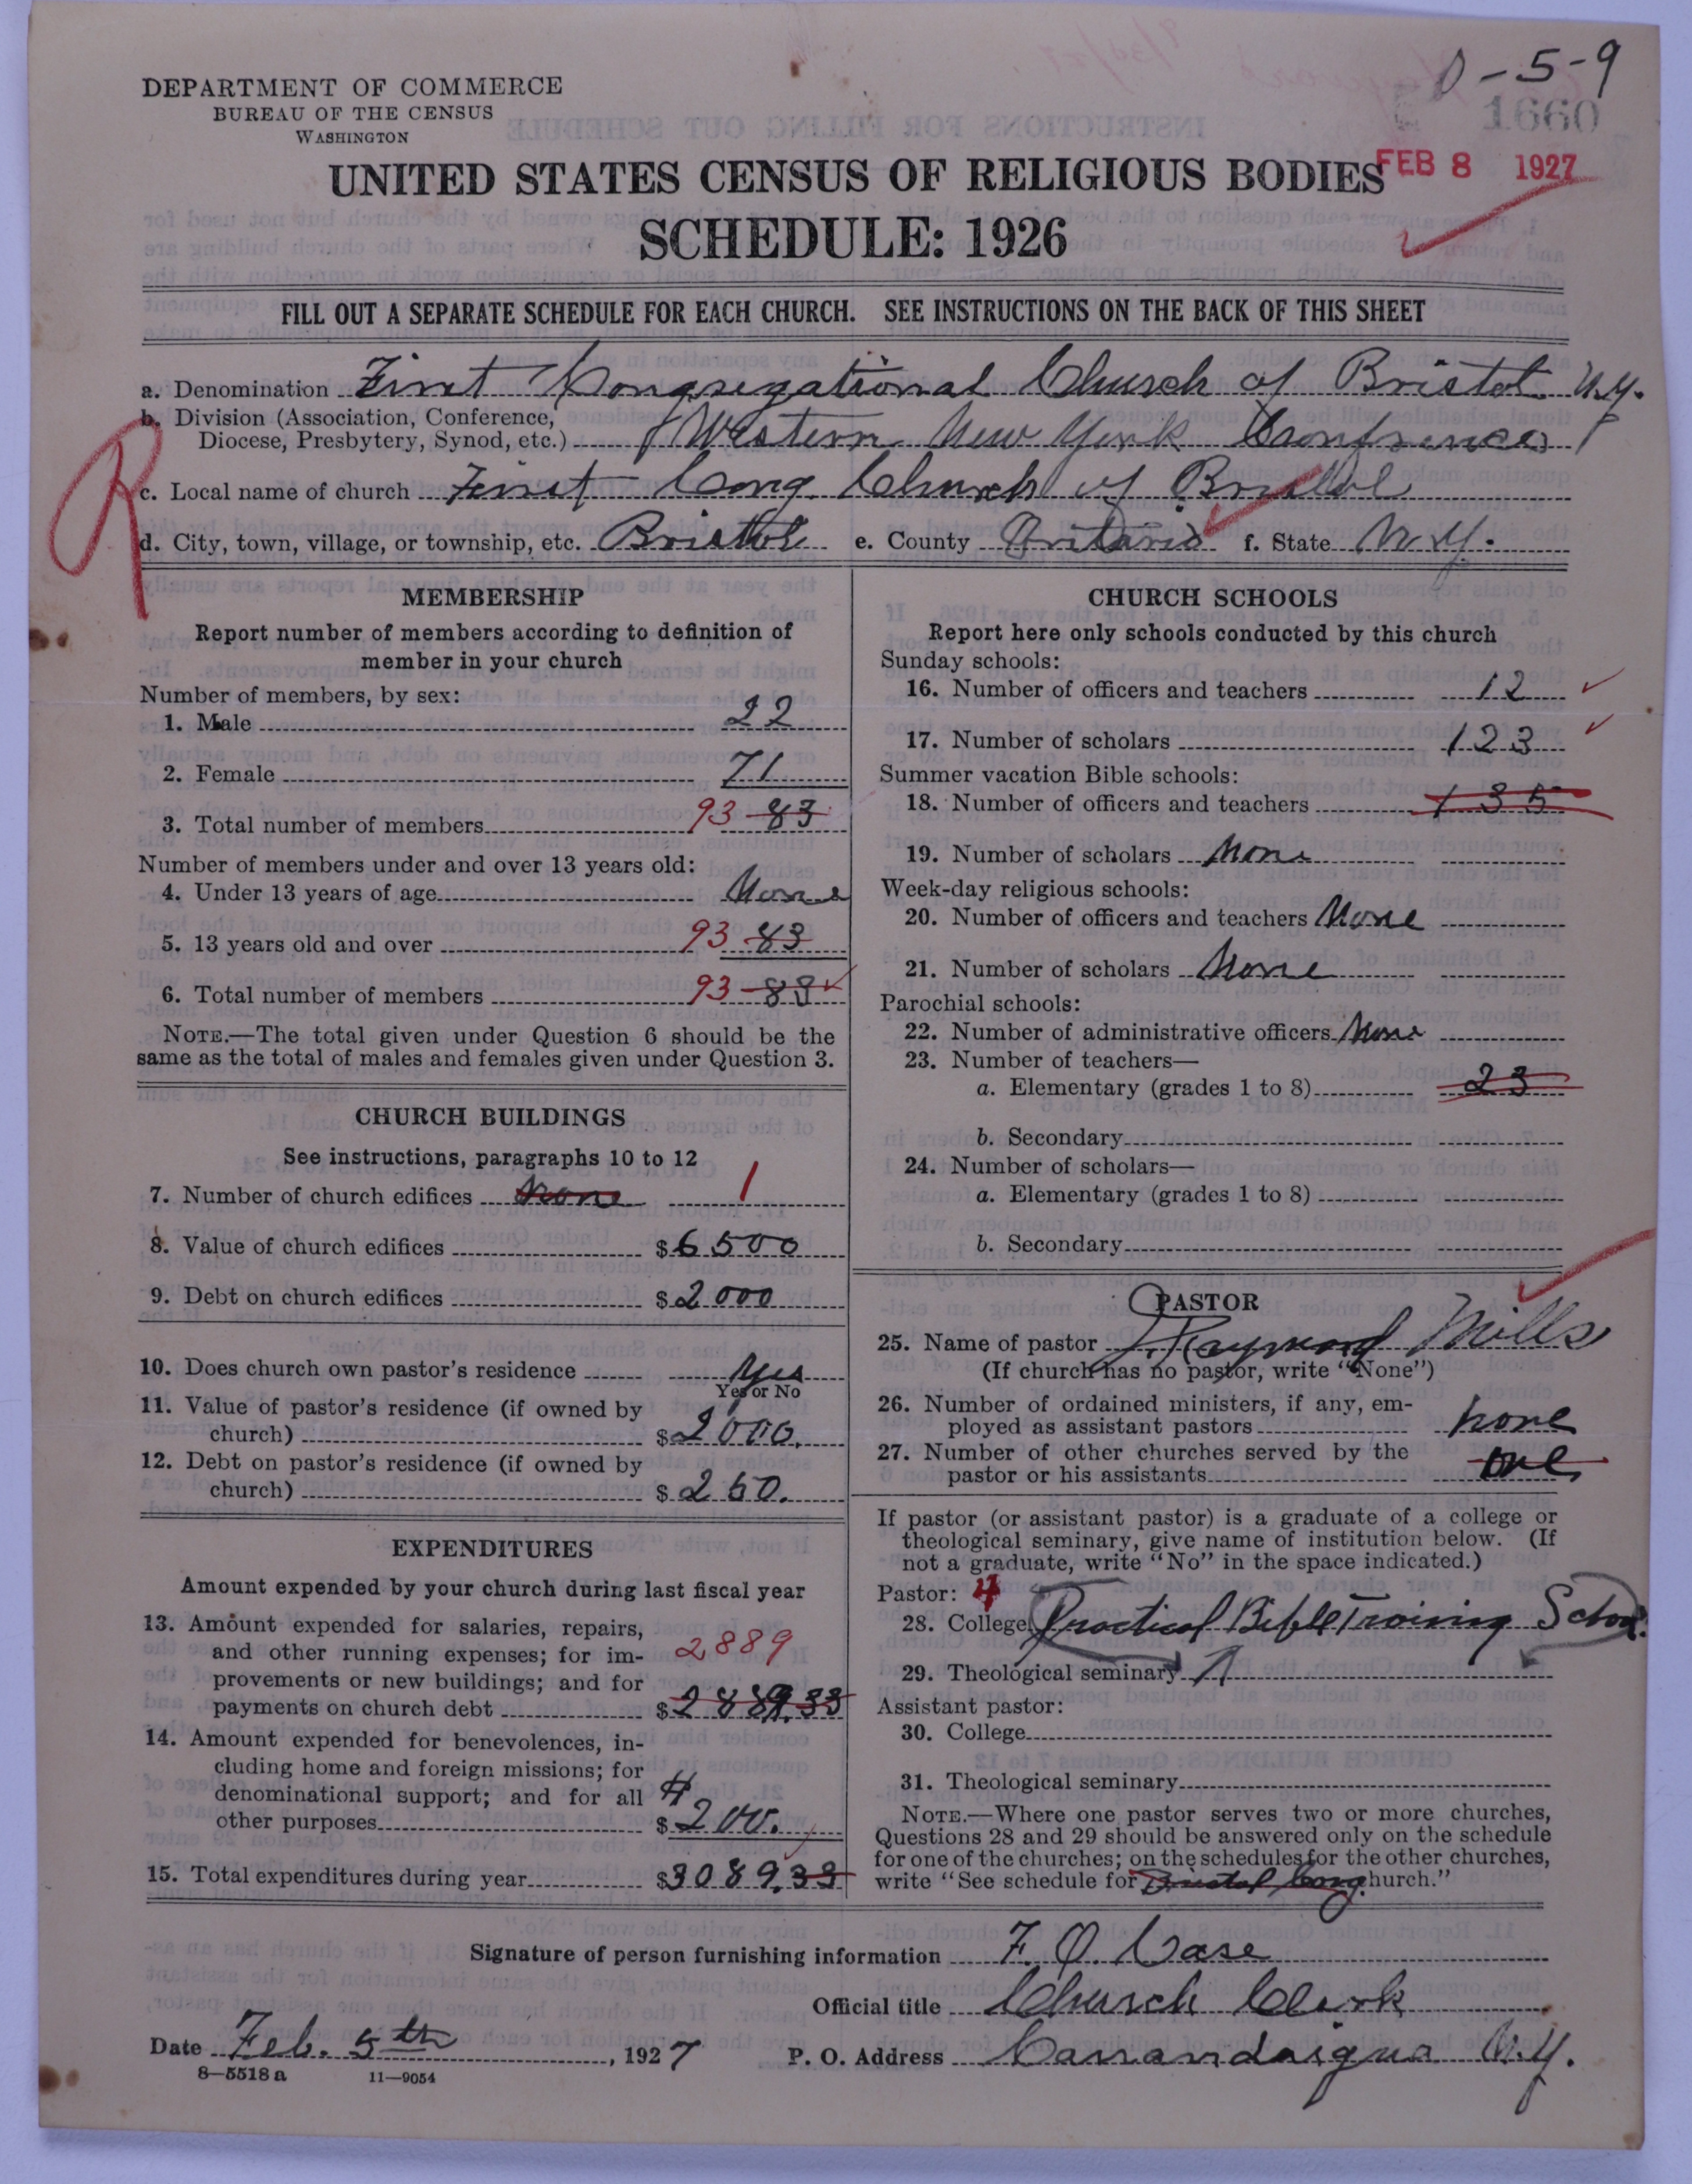 0-5-9
DEPARTMENT OF COMMERCE
BUREAU OF THE CENSUS
WASHINGTON
1660
UNITED STATES CENSUS OF RELIGIOUS BODIES
FEB 8 1927
SCHEDULE: 1926
FILL OUT A SEPARATE SCHEDULE FOR EACH CHURCH. SEE INSTRUCTIONS ON THE BACK OF THIS SHEET
a. Denomination First Congregational Church of Bristol N.Y.
b. Division (Association, Conference,
Diocese, Presbytery, Synod, etc.) Western New York Conference
R
c. Local name of church First Cong. Church of Bristol
d. City, town, village, or township, etc. Bristol e. County Ontario f. State N.Y.
MEMBERSHIP
Report number of members according to definition of
member in your church
Number of members, by sex:
1. Male 22
2. Female 71
3. Total number of members 93 83
Number of members under and over 13 years old:
4. Under 13 years of age None
5. 13 years old and over 93 83
6. Total number of members 93 83
NOTE.—The total given under Question 6 should be the
same as the total of males and females given under Question 3.
CHURCH BUILDINGS
See instructions, paragraphs 10 to 12
7. Number of church edifices None 1
8. Value of church edifices $6500
9. Debt on church edifices $2000
10. Does church own pastor's residence Yes
Yes or No
11. Value of pastor's residence (if owned by
church) $2000.
12. Debt on pastor's residence (if owned by
church) $250.
EXPENDITURES
Amount expended by your church during last fiscal year
13. Amount expended for salaries, repairs,
and other running expenses; for im- 2889
provements or new buildings; and for
payments on church debt $2889.33
14. Amount expended for benevolences, in-
cluding home and foreign missions; for
denominational support; and for all
other purposes $200.
15. Total expenditures during year $3089.33
CHURCH SCHOOLS
Report here only schools conducted by this church
Sunday schools:
16. Number of officers and teachers 12
17. Number of scholars 123
Summer vacation Bible schools:
18. Number of officers and teachers 135
19. Number of scholars None
Week-day religious schools:
20. Number of officers and teachers None
21. Number of scholars None
Parochial schools:
22. Number of administrative officers None
23. Number of teachers—
a. Elementary (grades 1 to 8) 23
b. Secondary
24. Number of scholars—
a. Elementary (grades 1 to 8)
b. Secondary
PASTOR
25. Name of pastor Raymond Mills
(If church has no pastor, write "None")
26. Number of ordained ministers, if any, em-
ployed as assistant pastors none
27. Number of other churches served by the
pastor or his assistants one
If pastor (or assistant pastor) is a graduate of a college or
theological seminary, give name of institution below. (If
not a graduate, write "No" in the space indicated.)
Pastor: 4
28. College Practical Bible Training School.
29. Theological seminary
Assistant pastor:
30. College
31. Theological seminary
NOTE.—Where one pastor serves two or more churches,
Questions 28 and 29 should be answered only on the schedule
for one of the churches; on the schedules for the other churches,
write "See schedule for Bristol Cong church."
Signature of person furnishing information F. O. Case
Official title Church Clerk
Date Feb. 5th, 1927 P. O. Address Canandaigua N.Y.
8—5518a 11—9054